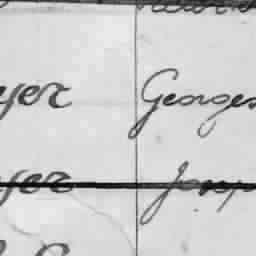 yer Georges
yer Josep